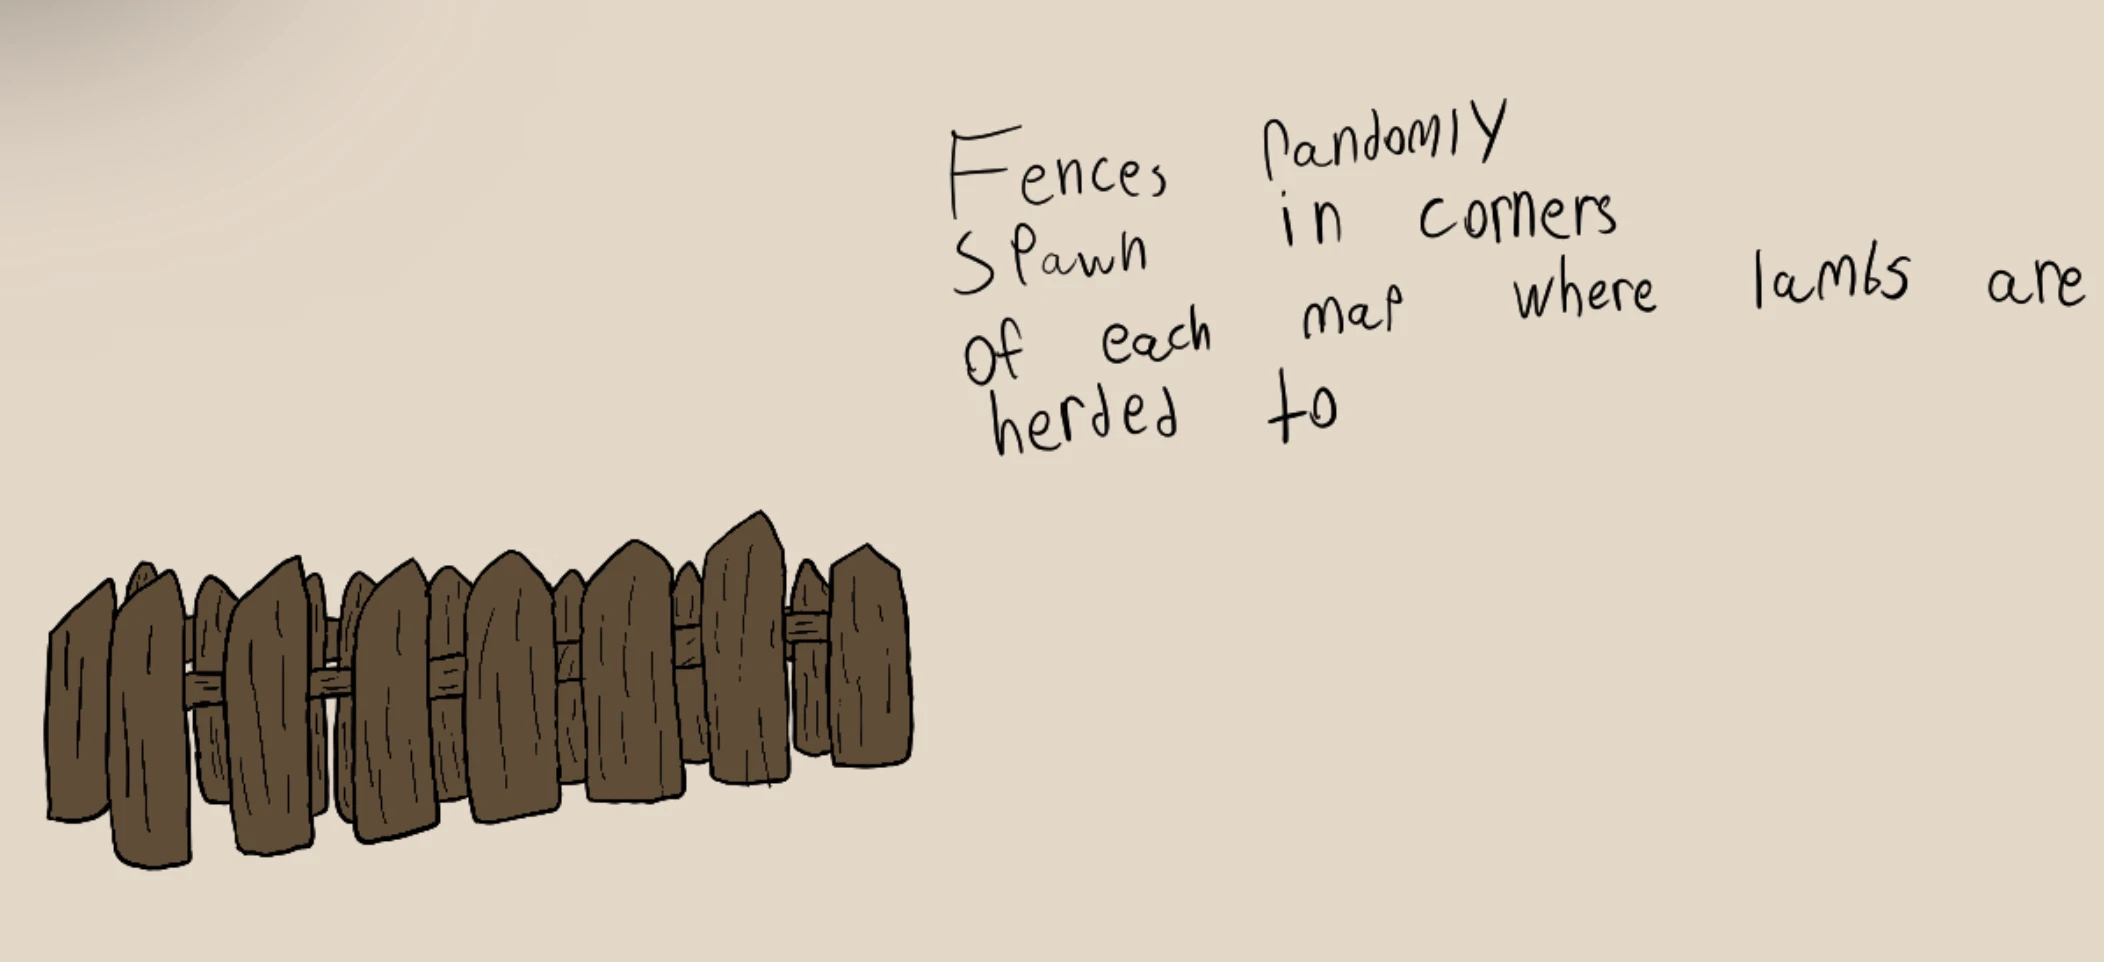 Fences randomly
spawn in corners
of each map where lambs are
herded to